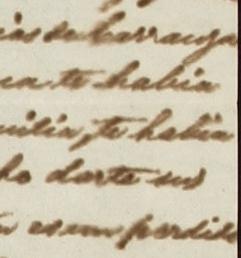 ias de barranga
na te habia
milia, te habia
ho darte sus
es un perdido